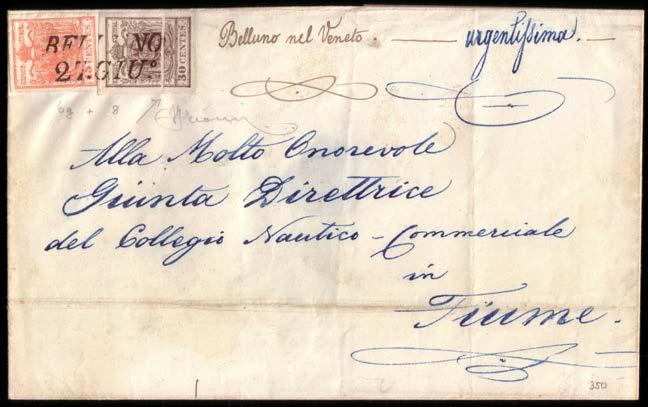 BELLUNO
27. GIU°
30 CENTES
Belluno nel Veneto. — urgentissima. —
6g + 8
Alla Molto Onorevole
Giunta Direttrice
del Collegio Nautico - Commerciale
in
Fiume.
350